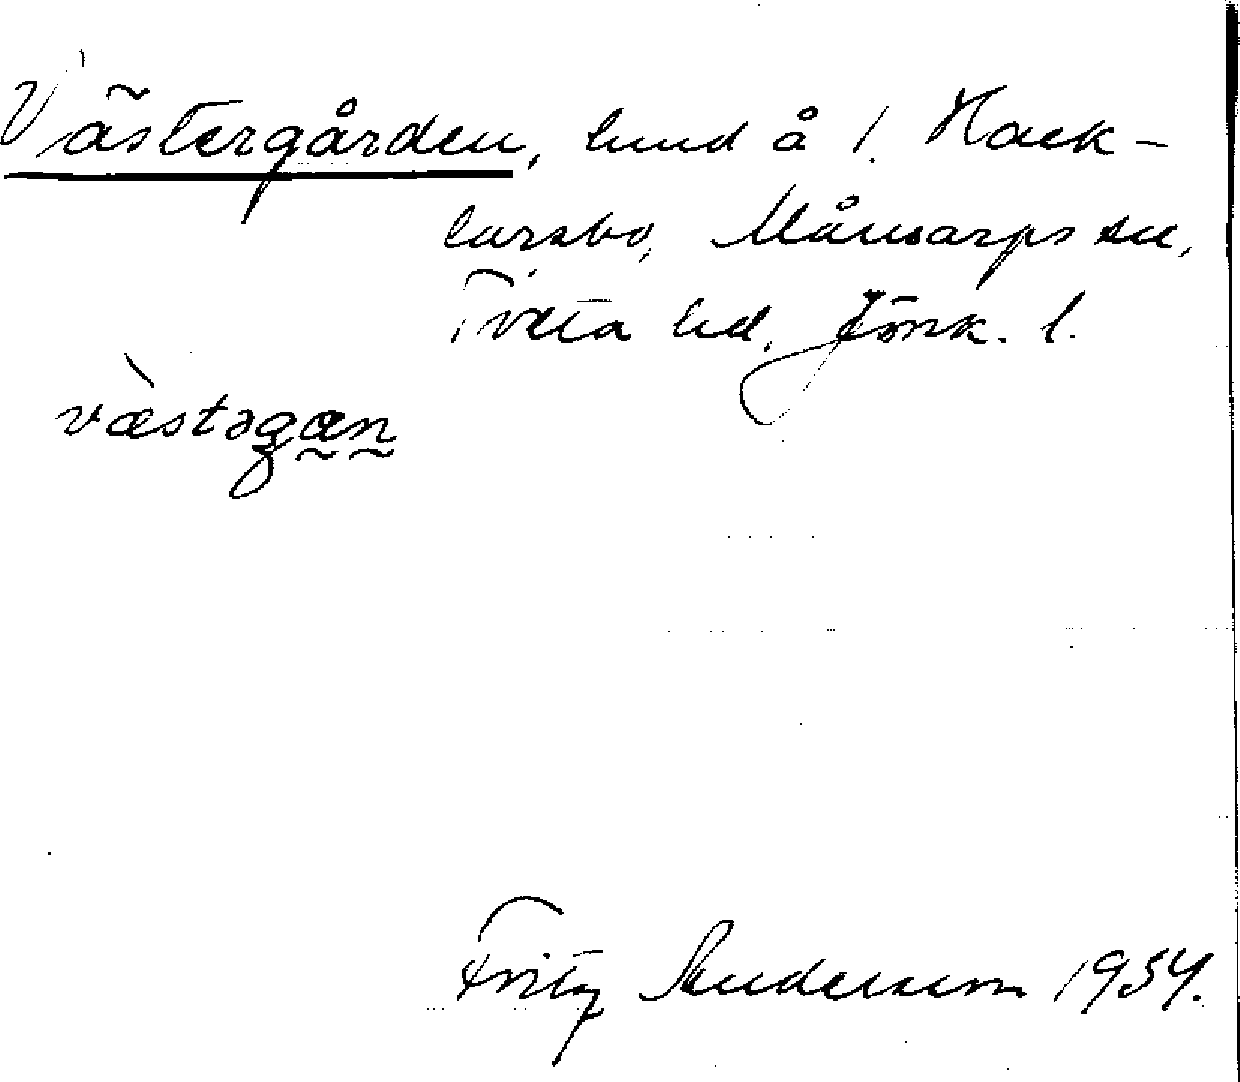 Västergården, hmd å l. Hack-
larsbo, Månsarps sn,
Tveta hd, Jönk. l.
væ̀stəgæn
Fritz Andersson 1954.